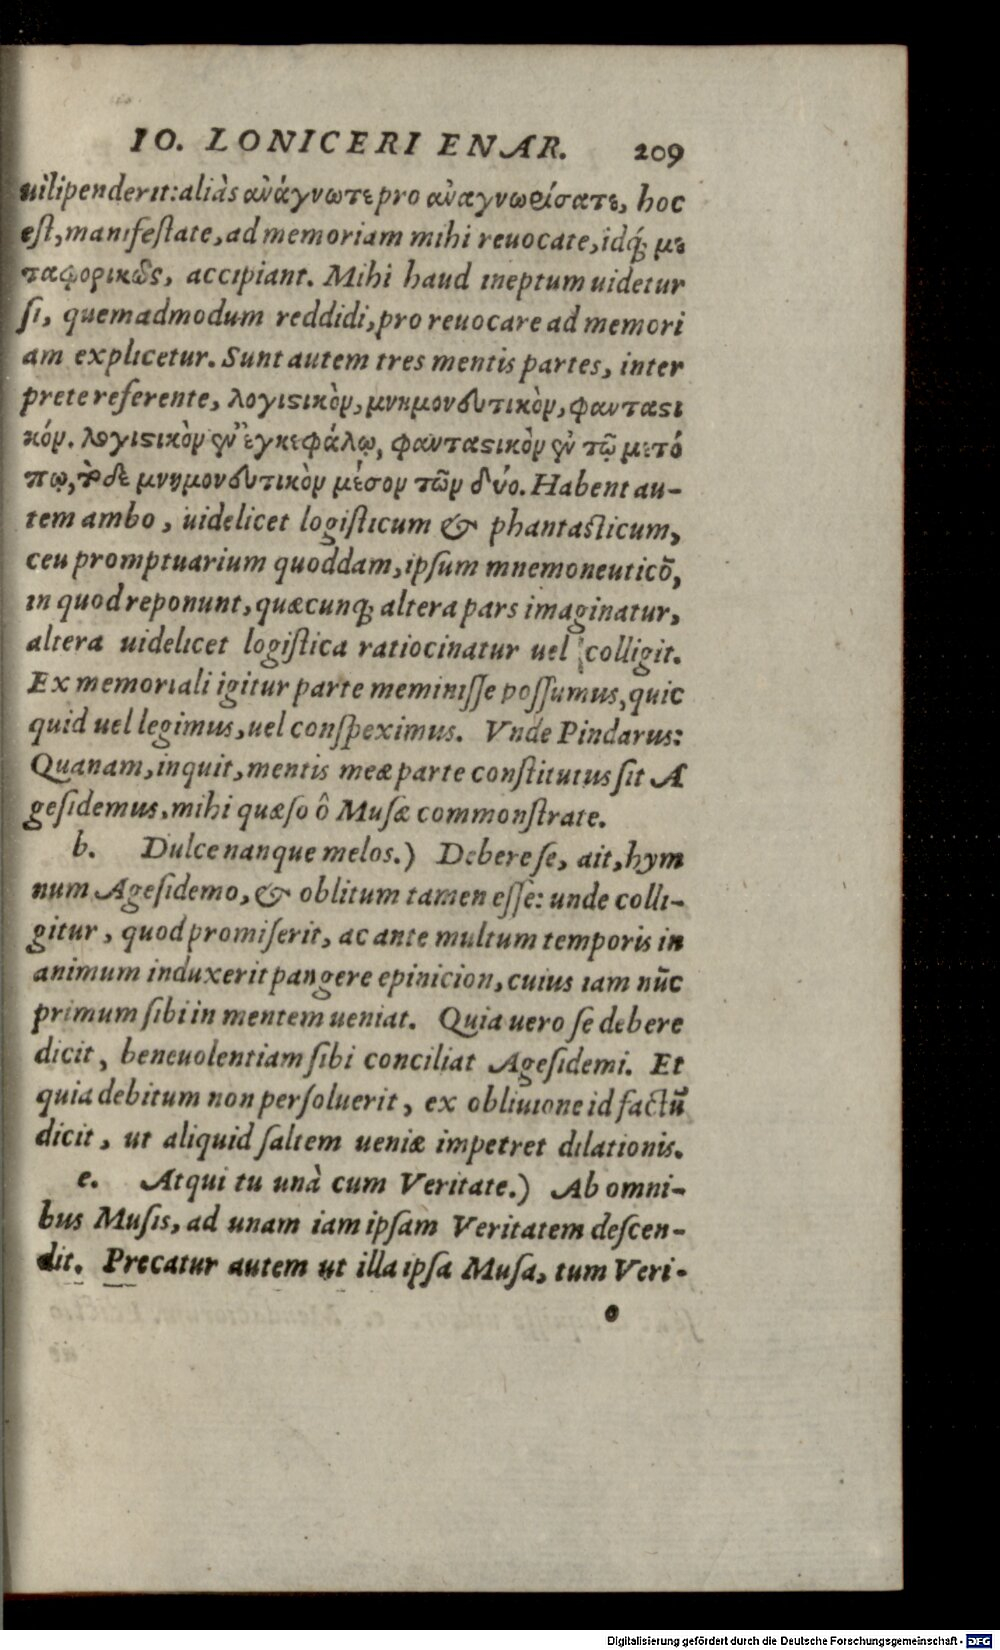 IO. LONICERI ENAR. 209
uilipenderit: aliàs ἀνάγνωτε pro ἀναγνωρίσατε, hoc
eſt, manifeſtate, ad memoriam mihi reuocate, idq́; με
ταφορικῶς, accipiant. Mihi haud ineptum uidetur
ſi, quemadmodum reddidi, pro reuocare ad memori
am explicetur. Sunt autem tres mentis partes, inter
prete referente, λογιϛικὸν, μνημονευτικὸν, φανταϛι
κόν. λογιϛικὸν ἐν ἐγκεφάλῳ, φανταϛικὸν ἐν τῷ μετώ
πῳ, τὸ δὲ μνημονευτικὸν μέσον τῶν δύο. Habent au-
tem ambo, uidelicet logiſticum & phantaſticum,
ceu promptuarium quoddam, ipſum mnemoneuticõ,
in quod reponunt, quæcunq; altera pars imaginatur,
altera uidelicet logiſtica ratiocinatur uel colligit.
Ex memoriali igitur parte meminiſſe poſſumus, quic
quid uel legimus, uel conſpeximus. Vnde Pindarus:
Quanam, inquit, mentis meæ parte conſtitutus ſit A
geſidemus, mihi quæſo ô Muſæ commonſtrate.
b. Dulce nanque melos.) Debere ſe, ait, hym
num Ageſidemo, & oblitum tamen eſſe: unde colli-
gitur, quod promiſerit, ac ante multum temporis in
animum induxerit pangere epinicion, cuius iam nũc
primum ſibi in mentem ueniat. Quia uero ſe debere
dicit, beneuolentiam ſibi conciliat Ageſidemi. Et
quia debitum non perſoluerit, ex obliuione id factũ
dicit, ut aliquid ſaltem ueniæ impetret dilationis.
e. Atqui tu unà cum Veritate.) Ab omni-
bus Muſis, ad unam iam ipſam Veritatem deſcen-
dit. Precatur autem ut illa ipſa Muſa, tum Veri-
o
Digitalisierung gefördert durch die Deutsche Forschungsgemeinschaft - DFG